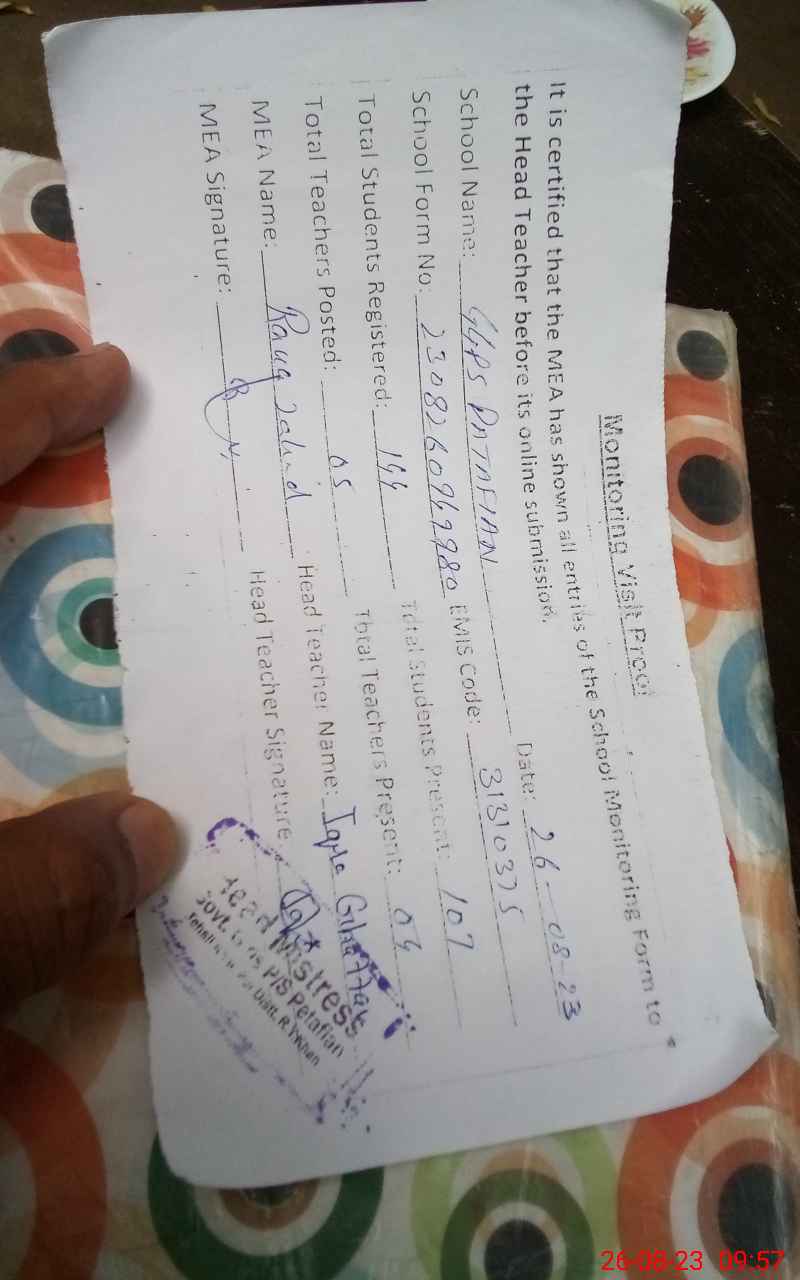 Monitoring Visit Proof
It is certified that the MEA has shown all entries of the School Monitoring Form to
the Head Teacher before its online submission.
Date: 26-08-23
School Name: GGPS PATAFIAN
EMIS Code: 31310375
School Form No: 230826094
Total Students Present: 107
Total Students Registered: 144
Total Teachers Present: 04
Total Teachers Posted: 05
Head Teacher Name: Iqra
MEA Name:
Head Teacher Signature
MEA Signature:
Head Mistress
Govt. Girls P/S Petafian
Distt. R.Y.Khan
26-08-23 09:57